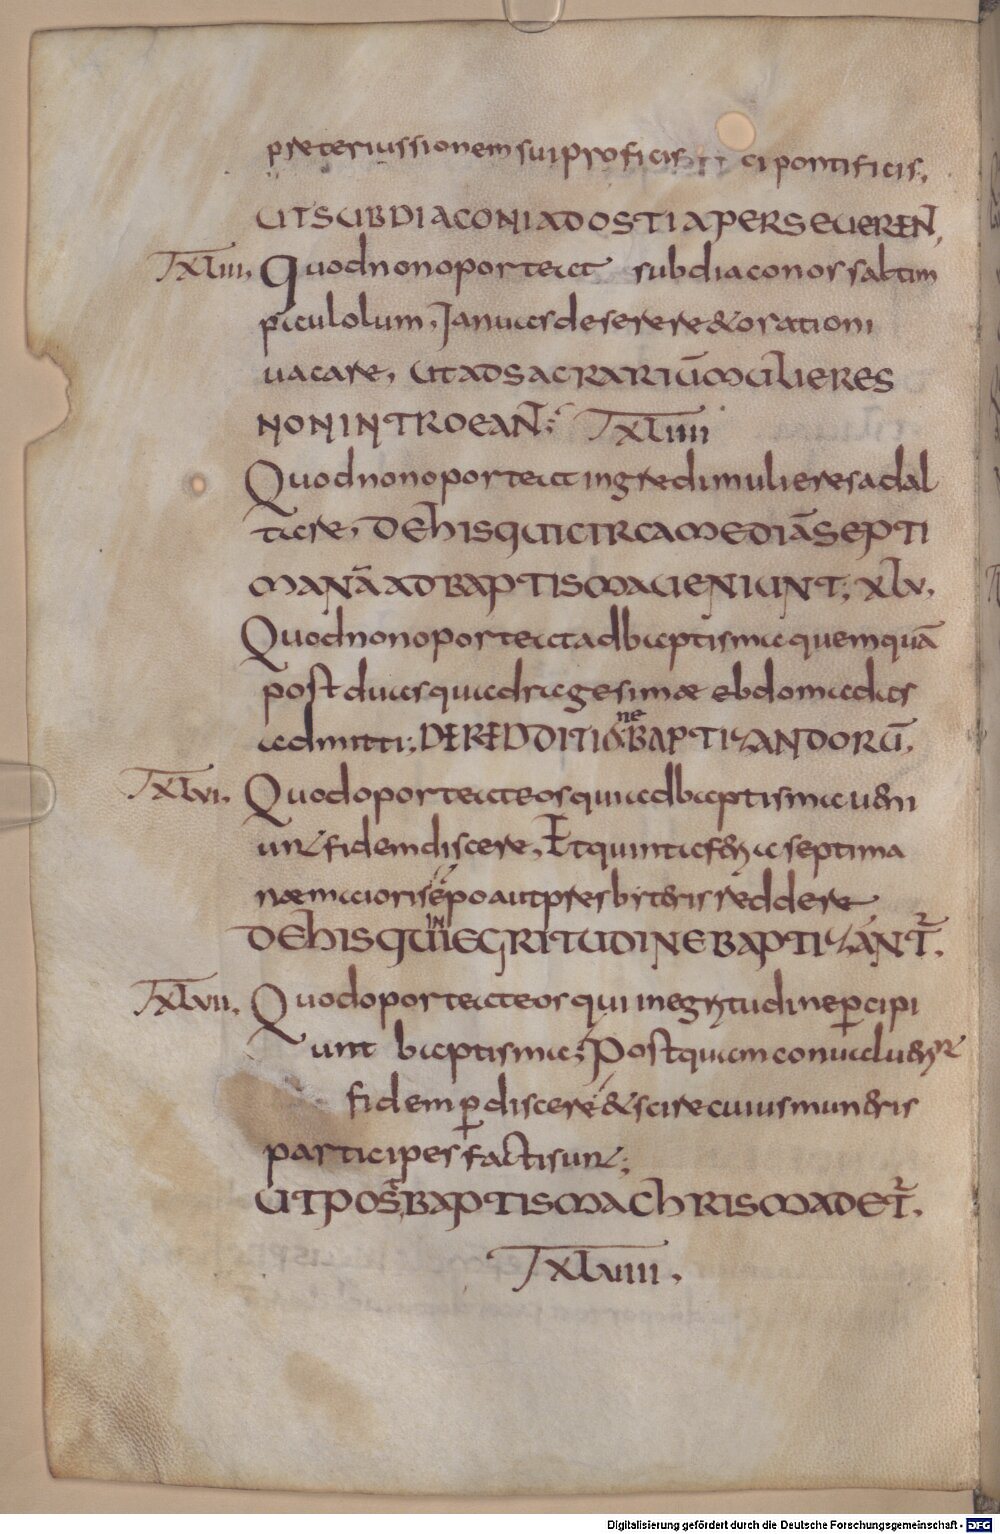 preteriussionem sui proficis ci pontificis.
UT SUBDIACONI AD OSTIA PERSEUEREN̄,
TXLIII, Quod non oporteat subdiaconos saltim
paululum, Ianuas deserere & orationi
uacare, UT AD SACRARIŪ MULIERES
NON INTROEAN̄; TXLIIII
Quod non oporteat ingredi mulieres ad al
tare, DE HIS QUI CIRCA MEDIĀ SEPTI
MANĀ AD BAPTISMA UENIUNT; XLV,
Quod non oporteat ad baptisma quemquā
post duas quadragesimæ ebdomadas
admitti; DE REDDITIONE BAPTIZANDORŪ,
TXLVI, Quod oporteat eos qui ad baptisma ueni
unt fidem discere, Et quinta feria septima
næ maioris epo aut presbyteris reddere
DE HIS QUI IN EGRITUDINE BAPTIZANT̄.
TXLVII, Quod oporteat eos qui in egritudine p̱cipi
unt baptisma; Postquam conualuerunt
fidem p̱discere & scire cuius muneris
participes facti sunt;
UT POS̄ BAPTISMA CHRISMA DET̄.
TXLVIII.
Digitalisierung gefördert durch die Deutsche Forschungsgemeinschaft - DFG